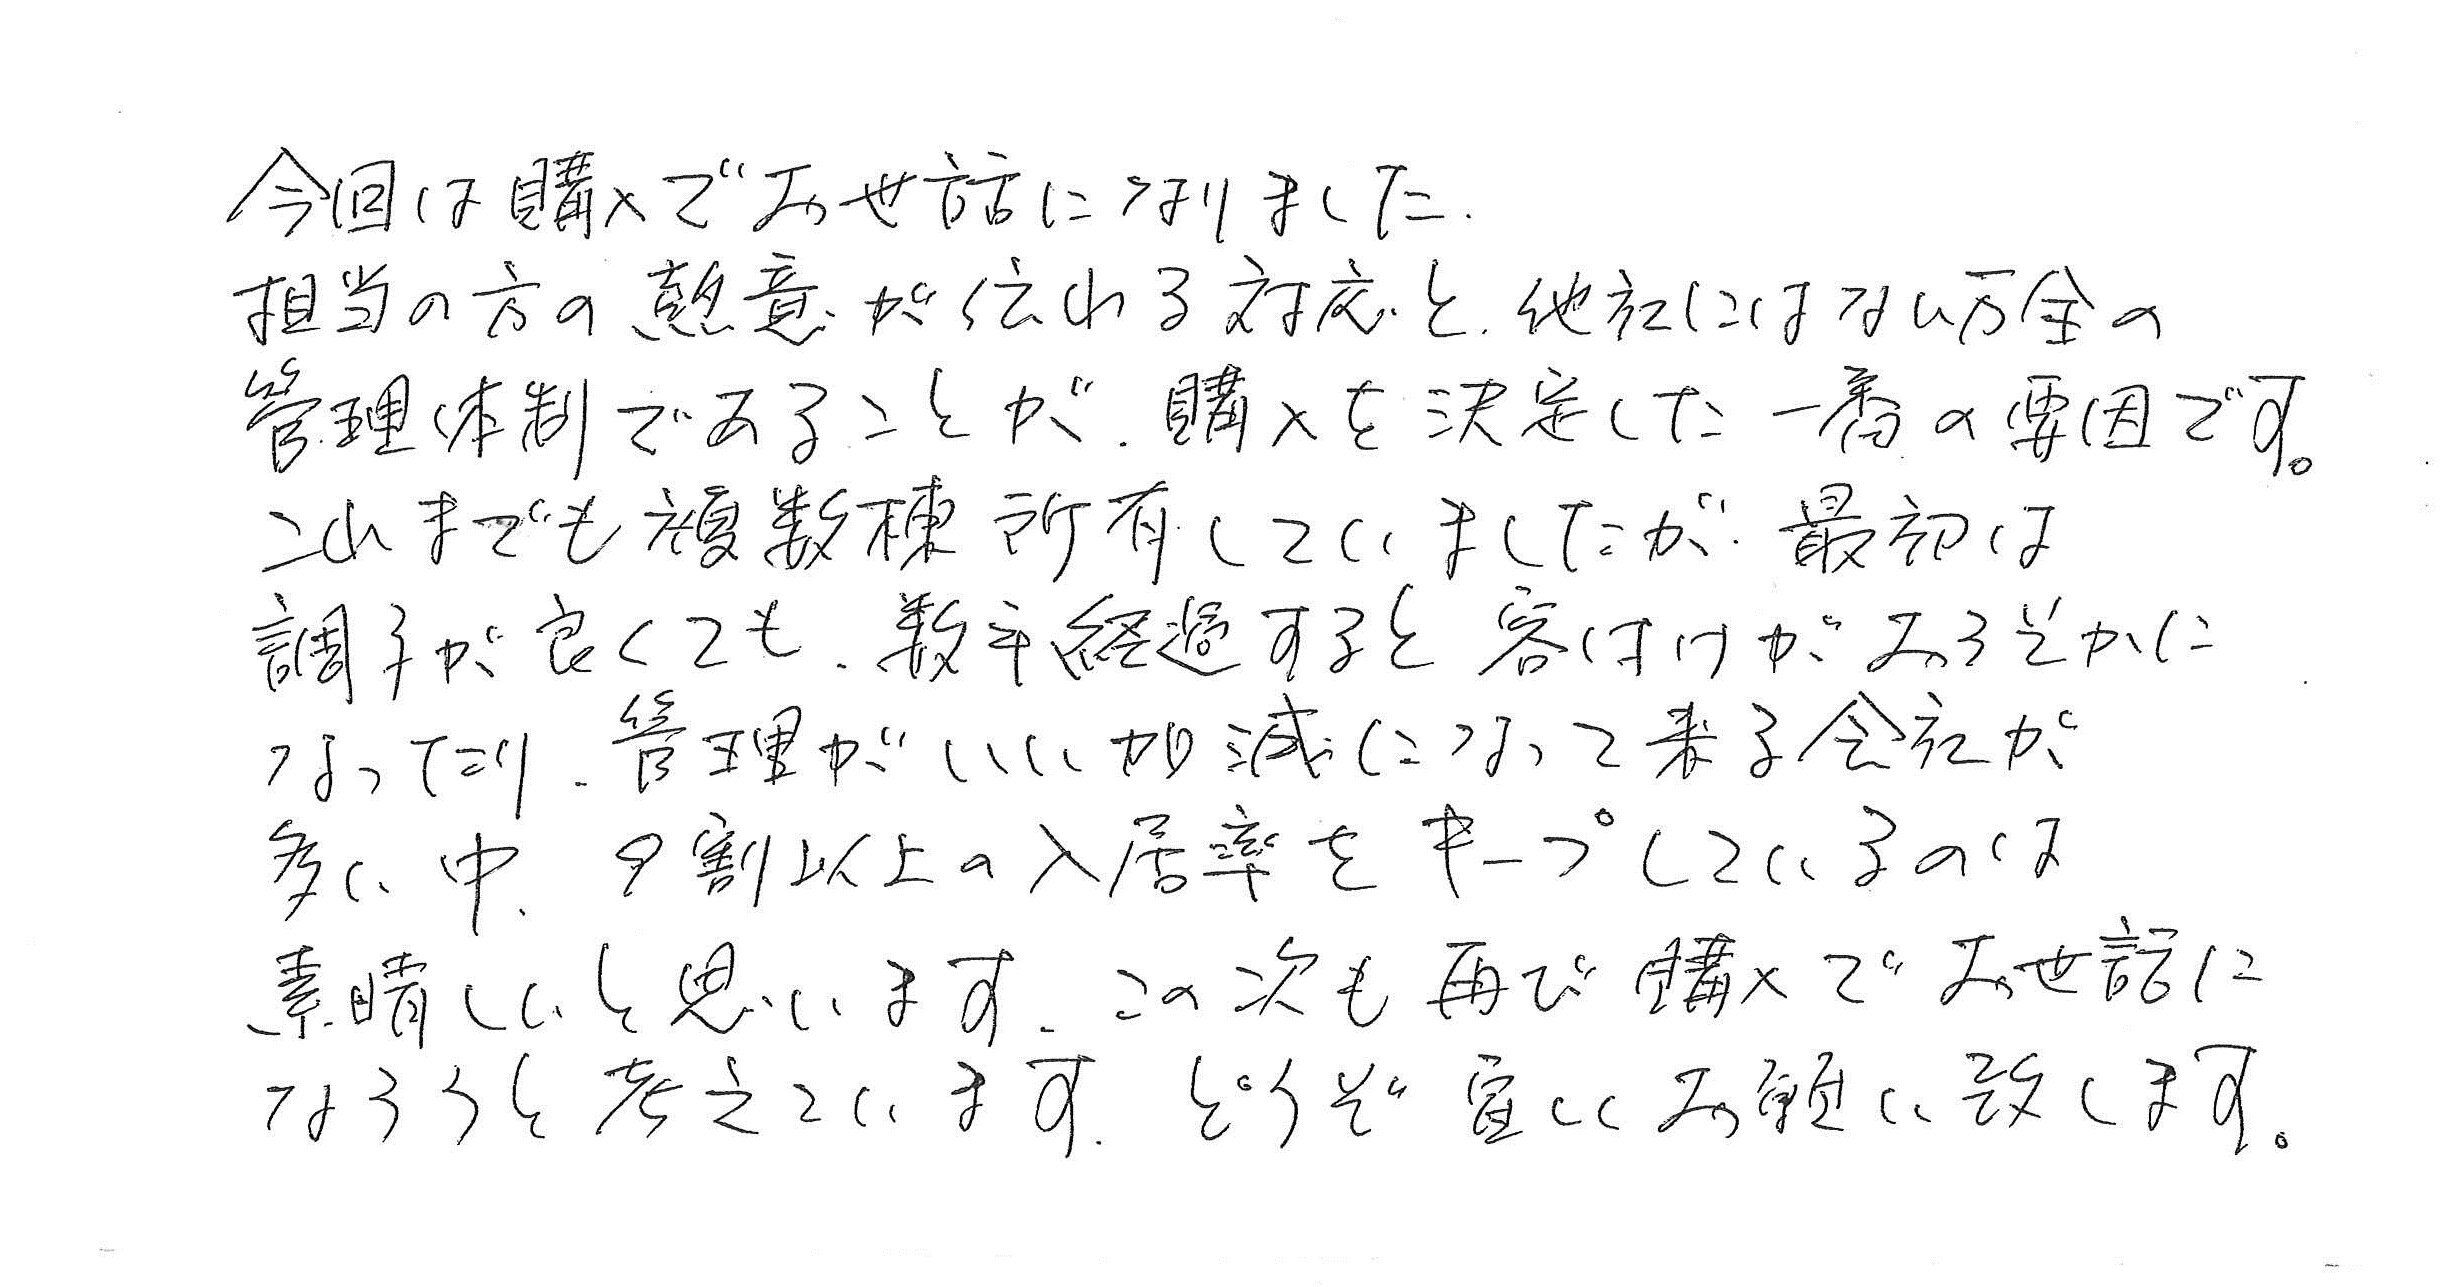 今回は購入でお世話になりました.
担当の方の熱意が伝れる対応と、他社にはない万全の
管理体制であることが、購入を決定した一番の要因です。
これまでも複数棟所有していましたが、最初は
調子が良くても、数年経過すると客付けがおろそかに
なったり、管理がいい加減になって来る会社が
多い中、9割以上の入居率をキープしているのは
素晴しいと思います、この次も再び購入でお世話に
なろうと考えています、どうぞ宜しくお願い致します。